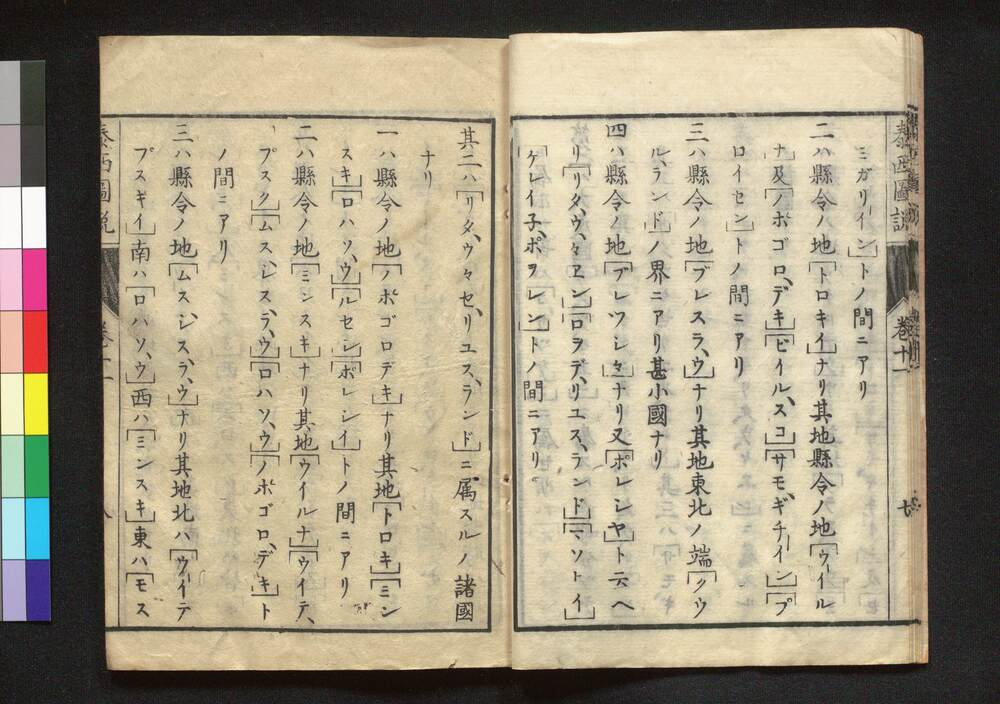 泰西圖說
卷十一
七
ミガリイン」トノ間ニアリ
二ハ縣令ノ地「トロキイ」ナリ其地縣令ノ地「ウイル
ナ」及「ノボゴロ、デキ」「ビイルスコ」「サモギチーイン」「プ
ロイセン」トノ間ニアリ
三ハ縣令ノ地「ブレスラ、ウ」ナリ其地東北ノ端「クウ
ル、ランド」ノ界ニアリ甚小國ナリ
四ハ縣令ノ地「ブレツシ々」ナリ又「ポレシヤ」ト云ヘ
リ「リタ、ウ、々ヱン」「ロヲデ、リユス、ランド」「マソト、イ」
「ケレイ子、ポヲレン」トノ間ニアリ
其二ハ「リタ、ウ々セ、リユス、ランド」ニ属スルノ諸國
ナリ
一ハ縣令ノ地「ノボゴロデキ」ナリ其地「トロキ」「ミン
スキ」「ロハソ、ウ」「ルセン」「ポレシイ」トノ間ニアリ
二ハ縣令ノ地「ミンスキ」ナリ其地「ウイルナ」「ウイテ、
プスク」「ムス、レスラ、ウ」「ロハソ、ウ」「ノボゴロ、デキ」ト
ノ間ニアリ
三ハ縣令ノ地「ムスシスラ、ウ」ナリ其地北ハ「ウイテ
プスギイ」南ハ「ロハソ、ウ」西ハ「ミンスキ」東ハ「モス
泰西圖說
卷十一
八